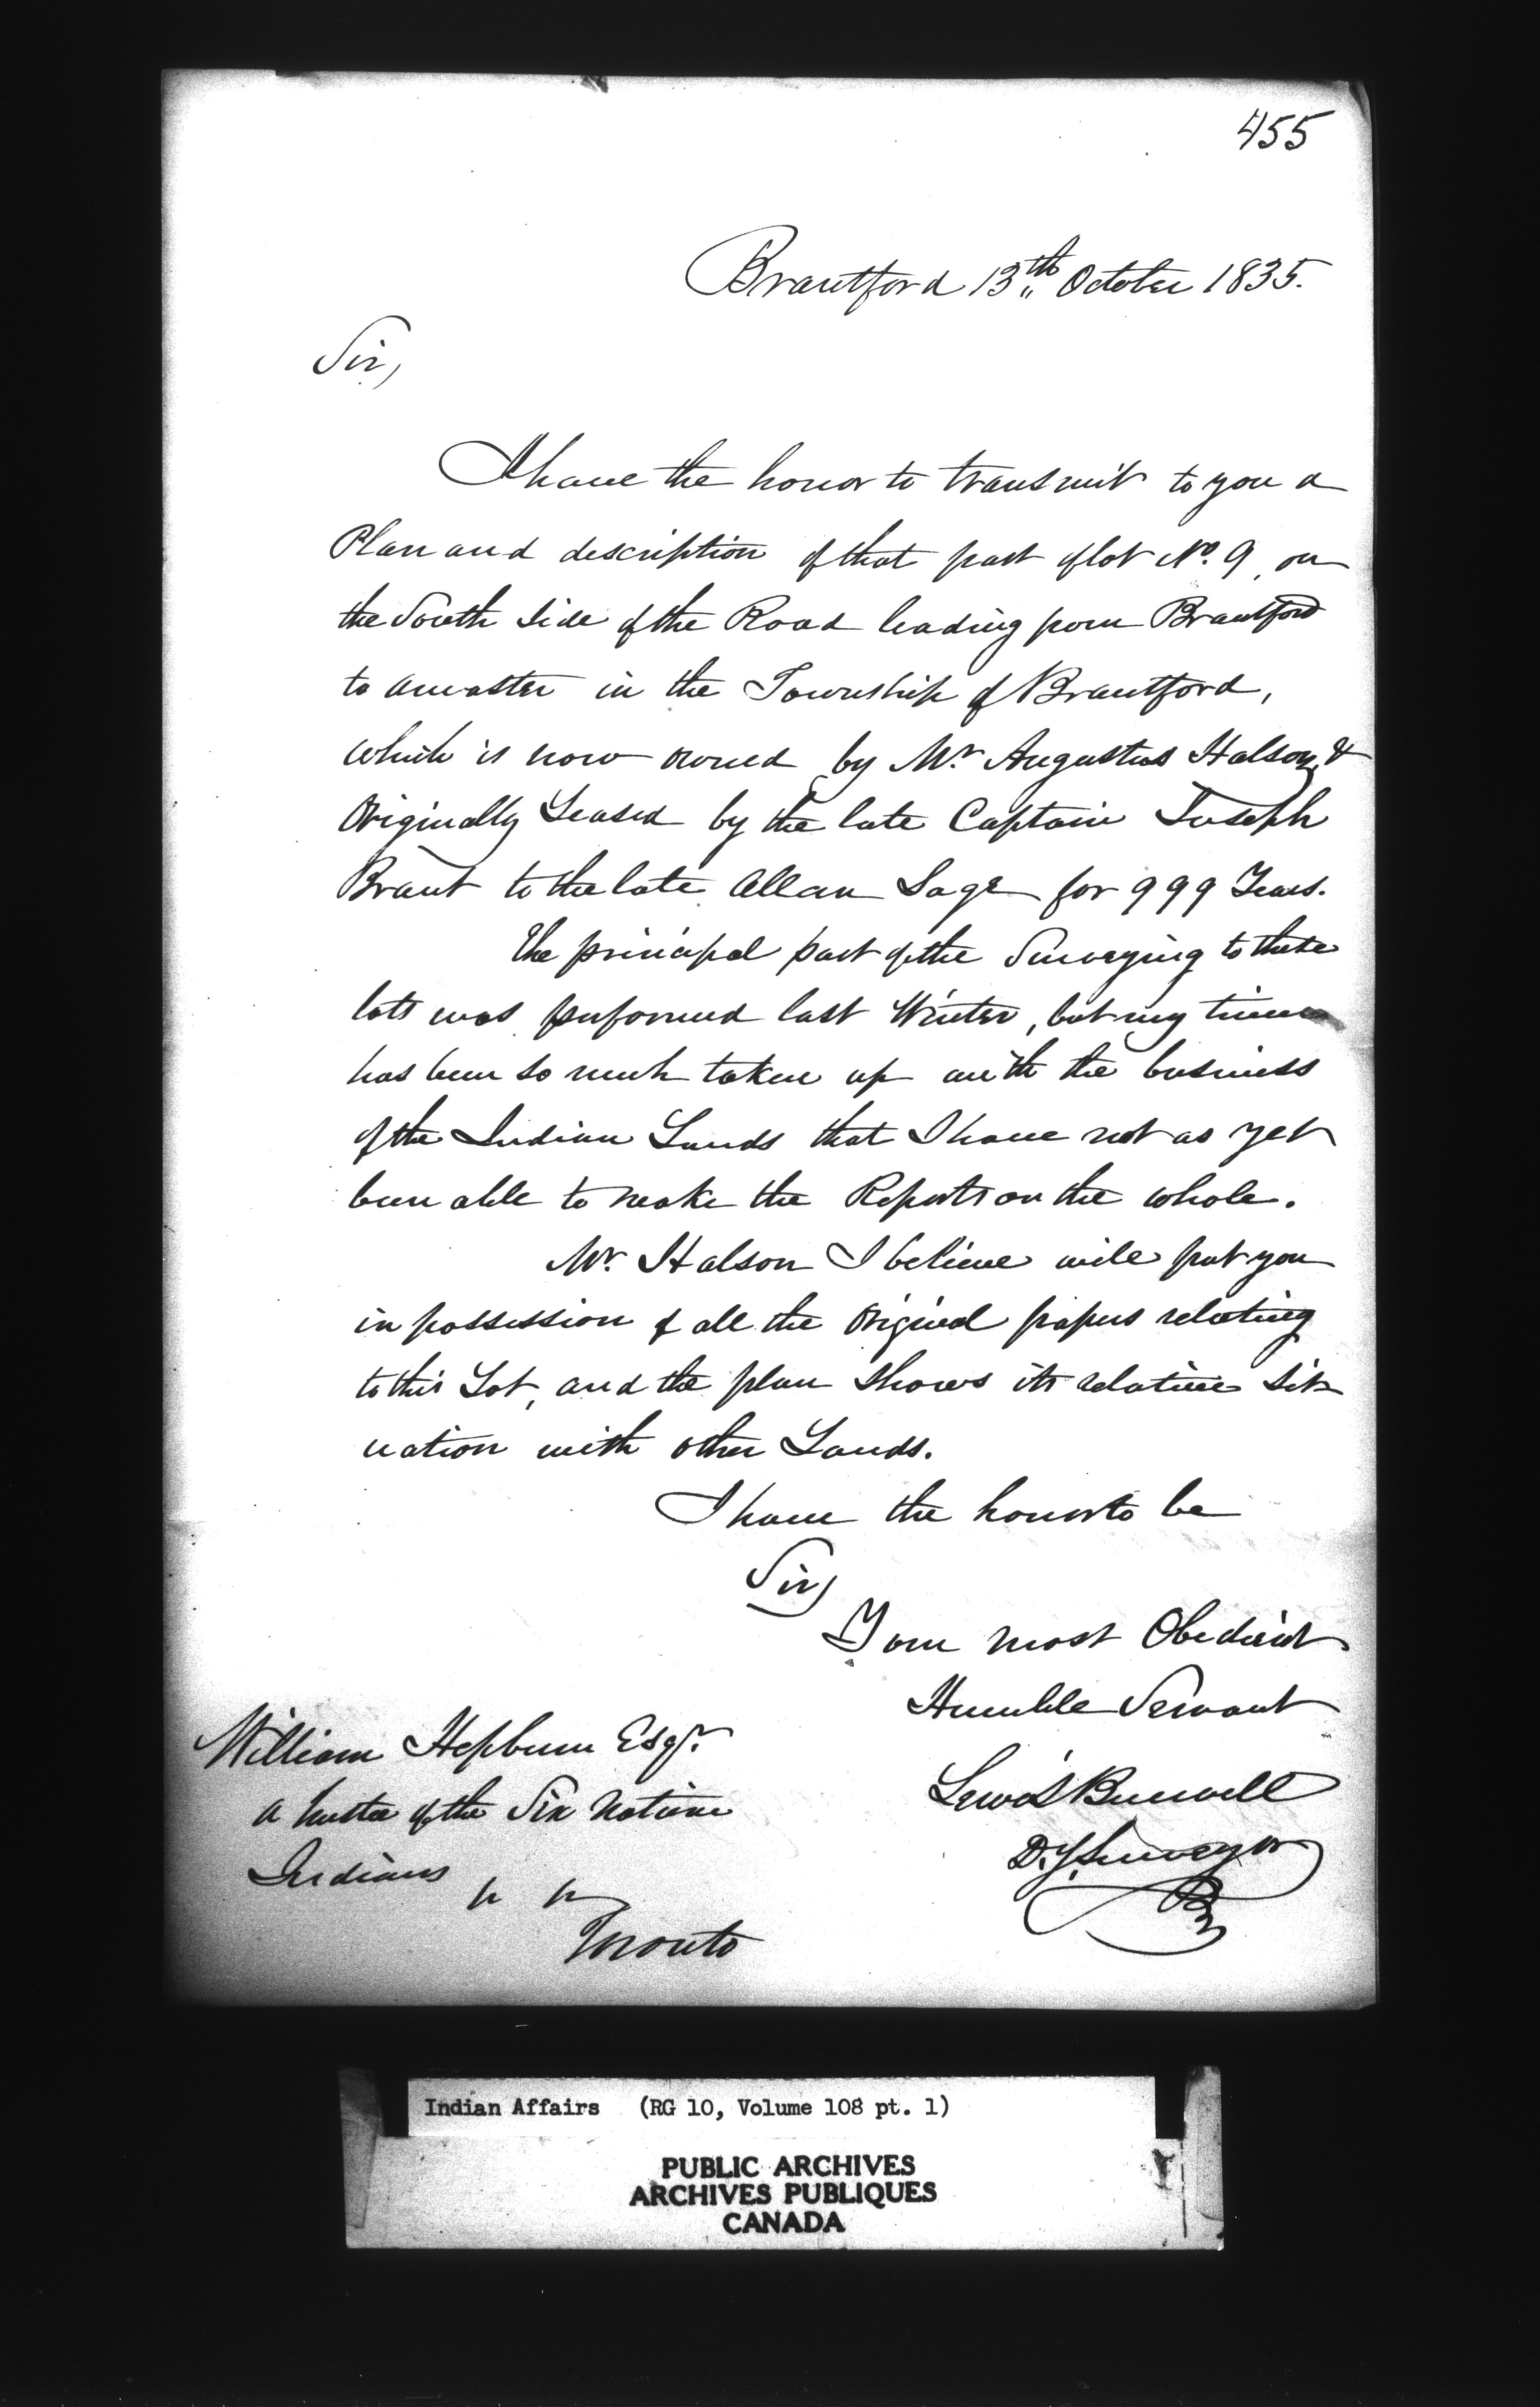 455
Brantford 13th October 1835.
Sir,
I have the honor to transmit to you a
Plan and description of that part of lot No. 9, on
the South Side of the Road leading from Brantford
to Ancaster in the Township of Brantford,
which is now owned by Mr. Augustus Halson, &
Originally Leased by the late Captain Joseph
Brant to the late Allan Sage for 999 Years.
The principal part of the Surveying to these
lots was performed last Winter, but my time
has been so much taken up with the business
of the Indian Lands that I have not as yet
been able to make the Reports on the whole.
Mr. Halson I believe will put you
in possession of all the Original papers relating
to this Lot, and the plan Shows its relative Sit-
uation with other Lands.
I have the honor to be
Sir,
Your most Obedient
Humble Servant
Lewis Burwell
D.y. Surveyor
William Hepburn Esqr.
a trustee of the Six Nations
Indians
Toronto
Indian Affairs (RG 10, Volume 108 pt. 1)
PUBLIC ARCHIVES
ARCHIVES PUBLIQUES
CANADA